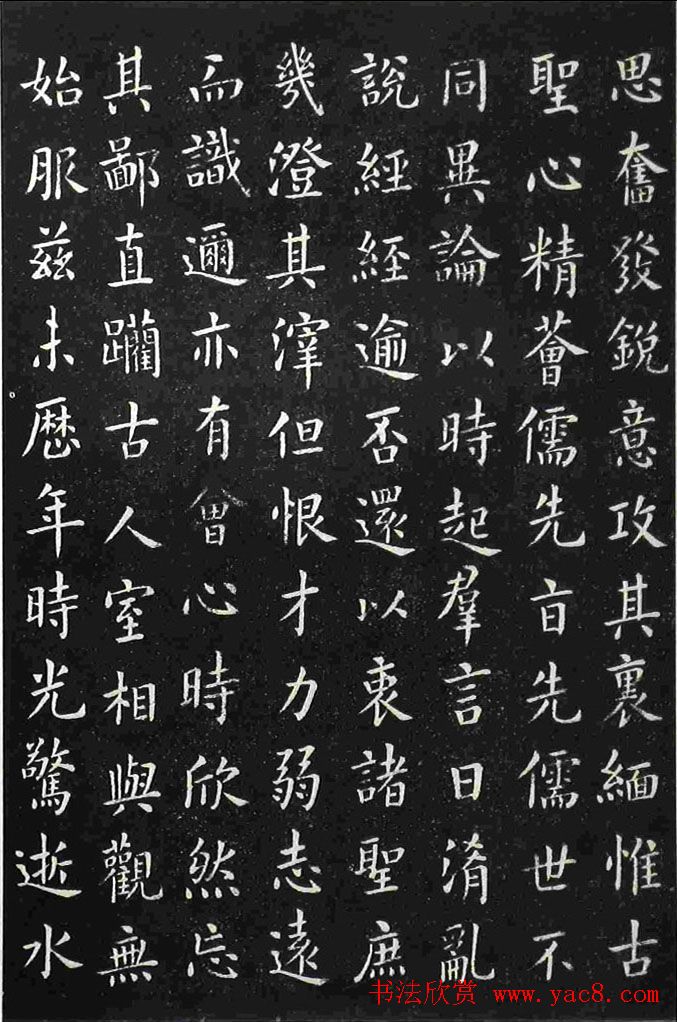 思奮發銳意攻其裏緬惟古
聖心精薈儒先盲先儒世不
同異論以時起羣言日淆亂
說經經逾否還以衷諸聖庶
幾澄其滓但恨才力弱志遠
而識邇亦有會心時欣然忘
其鄙直躪古人室相與觀無
始服茲未歷年時光驚逝水
书法欣赏 www.yac8.com